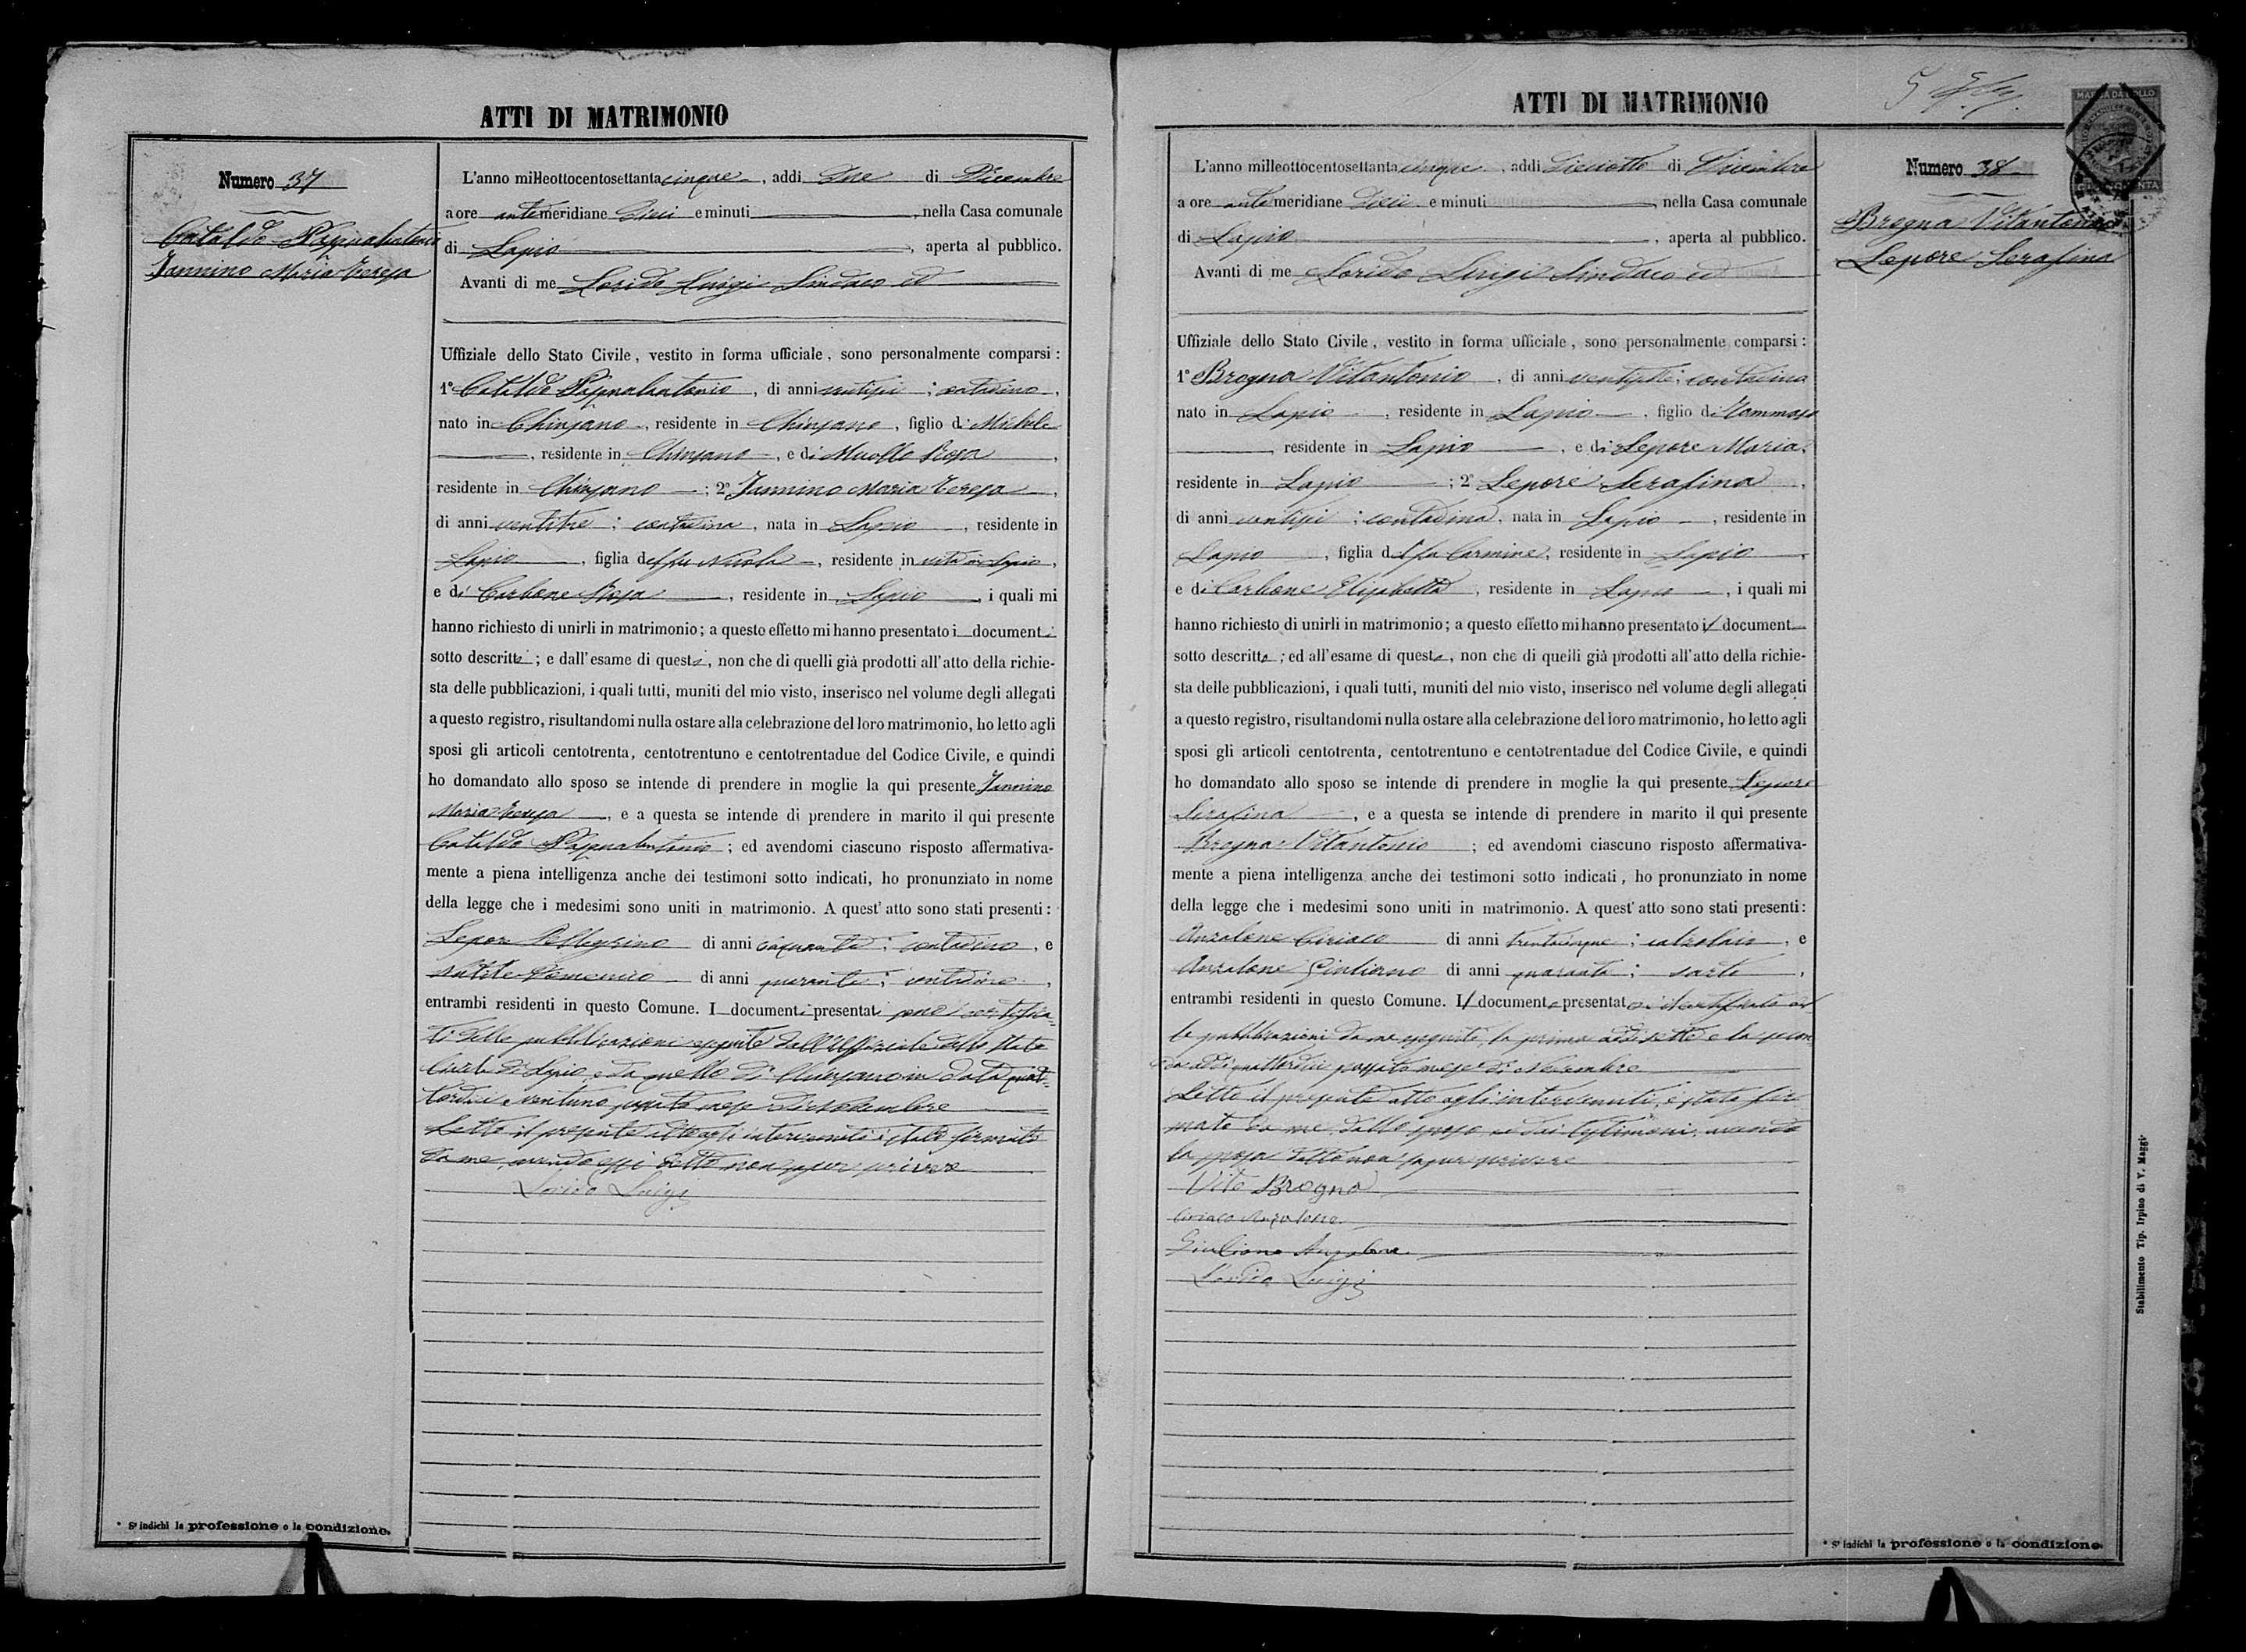 ATTI DI MATRIMONIO
Numero 37
Cataldo Pasqualantonio
Iannino Maria Teresa
L'anno milleottocentosettantacinque, addi due di Dicembre
a ore antemeridiane dieci e minuti, nella Casa comunale
di Lapio, aperta al pubblico.
Avanti di me Lorido Luigi Sindaco ed
Uffiziale dello Stato Civile, vestito in forma ufficiale, sono personalmente comparsi:
1° Cataldo Pasqualantonio, di anni ventisei; contadino,
nato in Chiusano, residente in Chiusano, figlio di Michele
, residente in Chiusano, e di Muollo Rosa,
residente in Chiusano; 2° Iannino Maria Teresa,
di anni ventitre; contadina, nata in Lapio, residente in
Lapio, figlia del fu Nicola, residente in vita in Lapio,
e di Carbone Rosa, residente in Lapio, i quali mi
hanno richiesto di unirli in matrimonio; a questo effetto mi hanno presentato i documenti
sotto descritti; e dall'esame di questi, non che di quelli già prodotti all'atto della richie-
sta delle pubblicazioni, i quali tutti, muniti del mio visto, inserisco nel volume degli allegati
a questo registro, risultandomi nulla ostare alla celebrazione del loro matrimonio, ho letto agli
sposi gli articoli centotrenta, centotrentuno e centotrentadue del Codice Civile, e quindi
ho domandato allo sposo se intende di prendere in moglie la qui presente Iannino
Maria Teresa, e a questa se intende di prendere in marito il qui presente
Cataldo Pasqualantonio; ed avendomi ciascuno risposto affermativa-
mente a piena intelligenza anche dei testimoni sotto indicati, ho pronunziato in nome
della legge che i medesimi sono uniti in matrimonio. A quest' atto sono stati presenti:
Lepore Pellegrino di anni cinquanta; contadino, e
Domenico di anni quaranta; contadino,
entrambi residenti in questo Comune. I documenti presentati sono i certifica-
ti delle pubblicazioni eseguite dall'Uffiziale dello Stato
Civile di Lapio e da quello di Chiusano in data quat-
tordici e ventuno passato mese di Novembre
Letto il presente atto agli intervenuti è stato firmato
da me, avendo essi detto non saper scrivere
Lorido Luigi
* Si indichi la professione o la condizione.
ATTI DI MATRIMONIO
MARCA DA BOLLO
Numero 38
Brogna Vitantonio
Lepore Serafina
L'anno milleottocentosettantacinque, addi dieciotto di Dicembre
a ore antemeridiane dieci e minuti, nella Casa comunale
di Lapio, aperta al pubblico.
Avanti di me Lorido Luigi Sindaco ed
Uffiziale dello Stato Civile, vestito in forma ufficiale, sono personalmente comparsi:
1° Brogna Vitantonio, di anni ventisette; contadino
nato in Lapio, residente in Lapio, figlio di Tommaso
, residente in Lapio, e di Lepore Maria,
residente in Lapio; 2° Lepore Serafina,
di anni ventisei; contadina, nata in Lapio, residente in
Lapio, figlia di Carmine, residente in Lapio,
e di Carbone Elisabetta, residente in Lapio, i quali mi
hanno richiesto di unirli in matrimonio; a questo effetto mi hanno presentato il document
sotto descritto; ed all'esame di questo, non che di quelli già prodotti all'atto della richie-
sta delle pubblicazioni, i quali tutti, muniti del mio visto, inserisco nel volume degli allegati
a questo registro, risultandomi nulla ostare alla celebrazione del loro matrimonio, ho letto agli
sposi gli articoli centotrenta, centotrentuno e centotrentadue del Codice Civile, e quindi
ho domandato allo sposo se intende di prendere in moglie la qui presente Lepore
Serafina, e a questa se intende di prendere in marito il qui presente
Brogna Vitantonio; ed avendomi ciascuno risposto affermativa-
mente a piena intelligenza anche dei testimoni sotto indicati, ho pronunziato in nome
della legge che i medesimi sono uniti in matrimonio. A quest' atto sono stati presenti:
Anzalone Ciriaco di anni trentacinque; calzolaio, e
Anzalone Giuliano di anni quaranta; sarto,
entrambi residenti in questo Comune. Il documento presentato è il certificato del
le pubblicazioni da me eseguite, la prima addi sette e la secon-
da addi quattordici passato mese di Novembre
Letto il presente atto agli intervenuti, è stato fir-
mato da me, dallo sposo, e dai testimoni, avendo
la sposa detto non saper scrivere
Vito Brogna
Ciriaco Anzalone
Giuliano Anzalone
Lorido Luigi
* Si indichi la professione o la condizione.
Stabilimento Tip. Irpino di V. Maggi